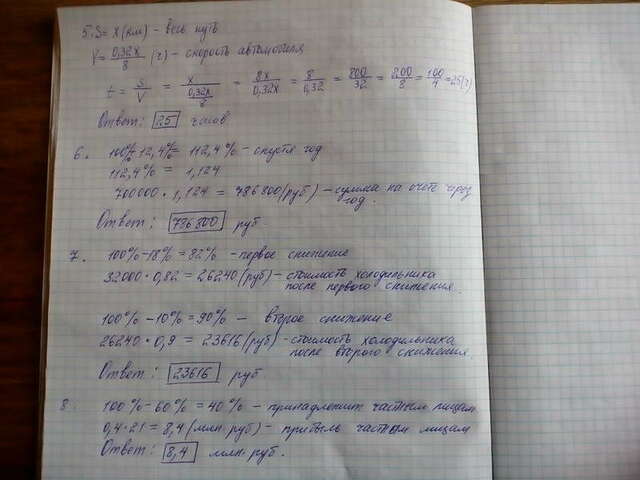 5. S = x (км) - весь путь
V = 0,32x/8 (г) - скорость автомобиля
t = S/V = x/(0,32x/8) = 8x/0,32x = 8/0,32 = 800/32 = 200/8 = 100/4 = 25 (г)
Ответ: 25 часов
6. 100% + 12,4% = 112,4% - спустя год
112,4% = 1,124
700000 · 1,124 = 786800 (руб) - сумма на счете через
год.
Ответ: 786800 руб
7. 100% - 18% = 82% - первое снижение
32000 · 0,82 = 26240 (руб) - стоимость холодильника
после первого снижения.
100% - 10% = 90% - второе снижение
26240 · 0,9 = 23616 (руб) - стоимость холодильника
после второго снижения.
Ответ: 23616 руб
8. 100% - 60% = 40% - принадлежит частным лицам
0,4 · 21 = 8,4 (млн руб) - прибыль частным лицам
Ответ: 8,4 млн. руб.